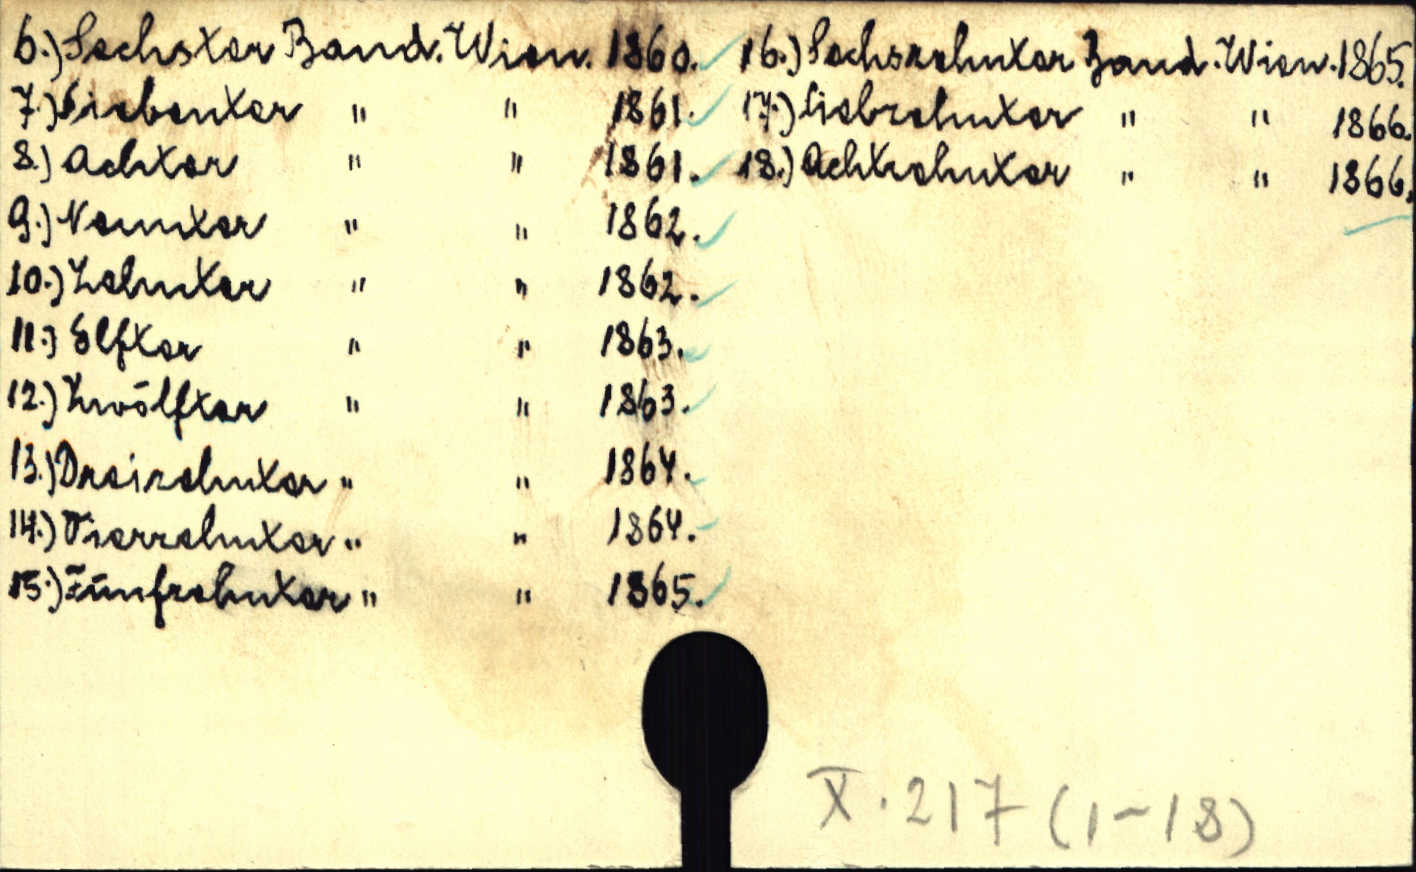 6.) Sechster Band. Wien. 1860.
7.) Siebenter " " 1861.
8.) Achter " " 1861.
9.) Neunter " " 1862.
10.) Zehnter " " 1862.
11.) Elfter " " 1863.
12.) Zwölfter " " 1863.
13.) Dreizehnter " " 1864.
14.) Vierzehnter " " 1864.
15.) Fünfzehnter " " 1865.
16.) Sechszehnter Band. Wien. 1865.
17.) Siebzehnter " " 1866.
18.) Achtzehnter " " 1866.
X. 217 (1-18)